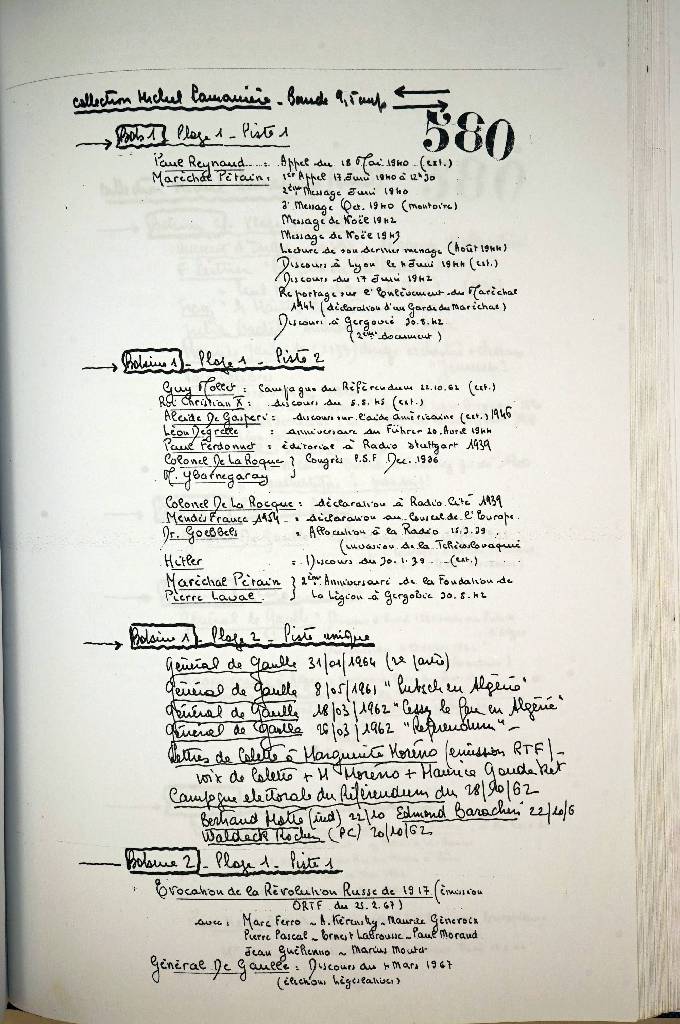 collection Michel Lamanière - Bande 9,5 cm/s
580
Bob. 1 Plage 1 - Piste 1
Paul Reynaud : Appel du 18 Mai 1940 - (ext.)
Maréchal Pétain : 1er Appel 17 Juin 1940 à 12h30
2ème Message Juin 1940
3e Message Oct. 1940 (montoire)
Message de Noël 1942
Message de Noël 1943
Lecture de son dernier message (Août 1944)
Discours à Lyon le 4 Juin 1944 (ext.)
Discours du 17 Juin 1942
Reportage sur l'Enlèvement du Maréchal
1944 (déclaration d'un Garde du Maréchal)
Discours à Gergovie 30.8.42
(2ème document)
Bobine 1 - Plage 1 - Piste 2
Guy Mollet : Campagne du Référendum 22.10.62 (ext.)
Roi Christian X : discours du 5.5.45 (ext.)
Alcide De Gasperi : discours sur l'aide américaine (ext.) 1946
Léon Degrelle : anniversaire du Führer 20 Avril 1944
Paul Ferdonnet : éditorial à Radio Stuttgart 1939
Colonel De La Roque } Congrès P.S.F Dec. 1936
M. Ybarnegaray }
Colonel De La Rocque : déclaration à Radio. Cité 1939
Mendès France 1954 : déclaration au Conseil de l'Europe.
Dr. Goebbels : Allocution à la Radio 15.3.39
(invasion de la Tchécoslovaquie
Hitler : Discours du 30.1.39 - (ext.)
Maréchal Pétain } 2ème Anniversaire de la Fondation de
Pierre Laval } la Légion à Gergovie 30.8.42
Bobine 1 - Plage 2 - Piste unique
Général de Gaulle 31/01/1964 (2e partie)
Général de Gaulle 8/05/1961 "Putsch en Algérie"
Général de Gaulle 18/03/1962 "Cessez le feu en Algérie"
Général de Gaulle 26/03/1962 "Référendum" -
Lettres de Colette à Marguerite Moréno (émission RTF) -
voix de Colette + M Moréno + Maurice Goudeket
Campagne electorale du Référendum du 28/10/62
Bertrand Motte (ind) 22/10 Edmond Barachin 22/10/6
Waldeck Rochet (PC) 20/10/62
Bobine 2 - Plage 1 - Piste 1
Evocation de la Révolution Russe de 1917 (émission
ORTF du 25.2.67)
avec : Marc Ferro - A. Kérensky - Maurice Genevoix
Pierre Pascal - Ernest Labrousse - Paul Morand
Jean Guéhenno - Marius Moutet
Général De Gaulle : Discours du 4 Mars 1967
(élections législatives)